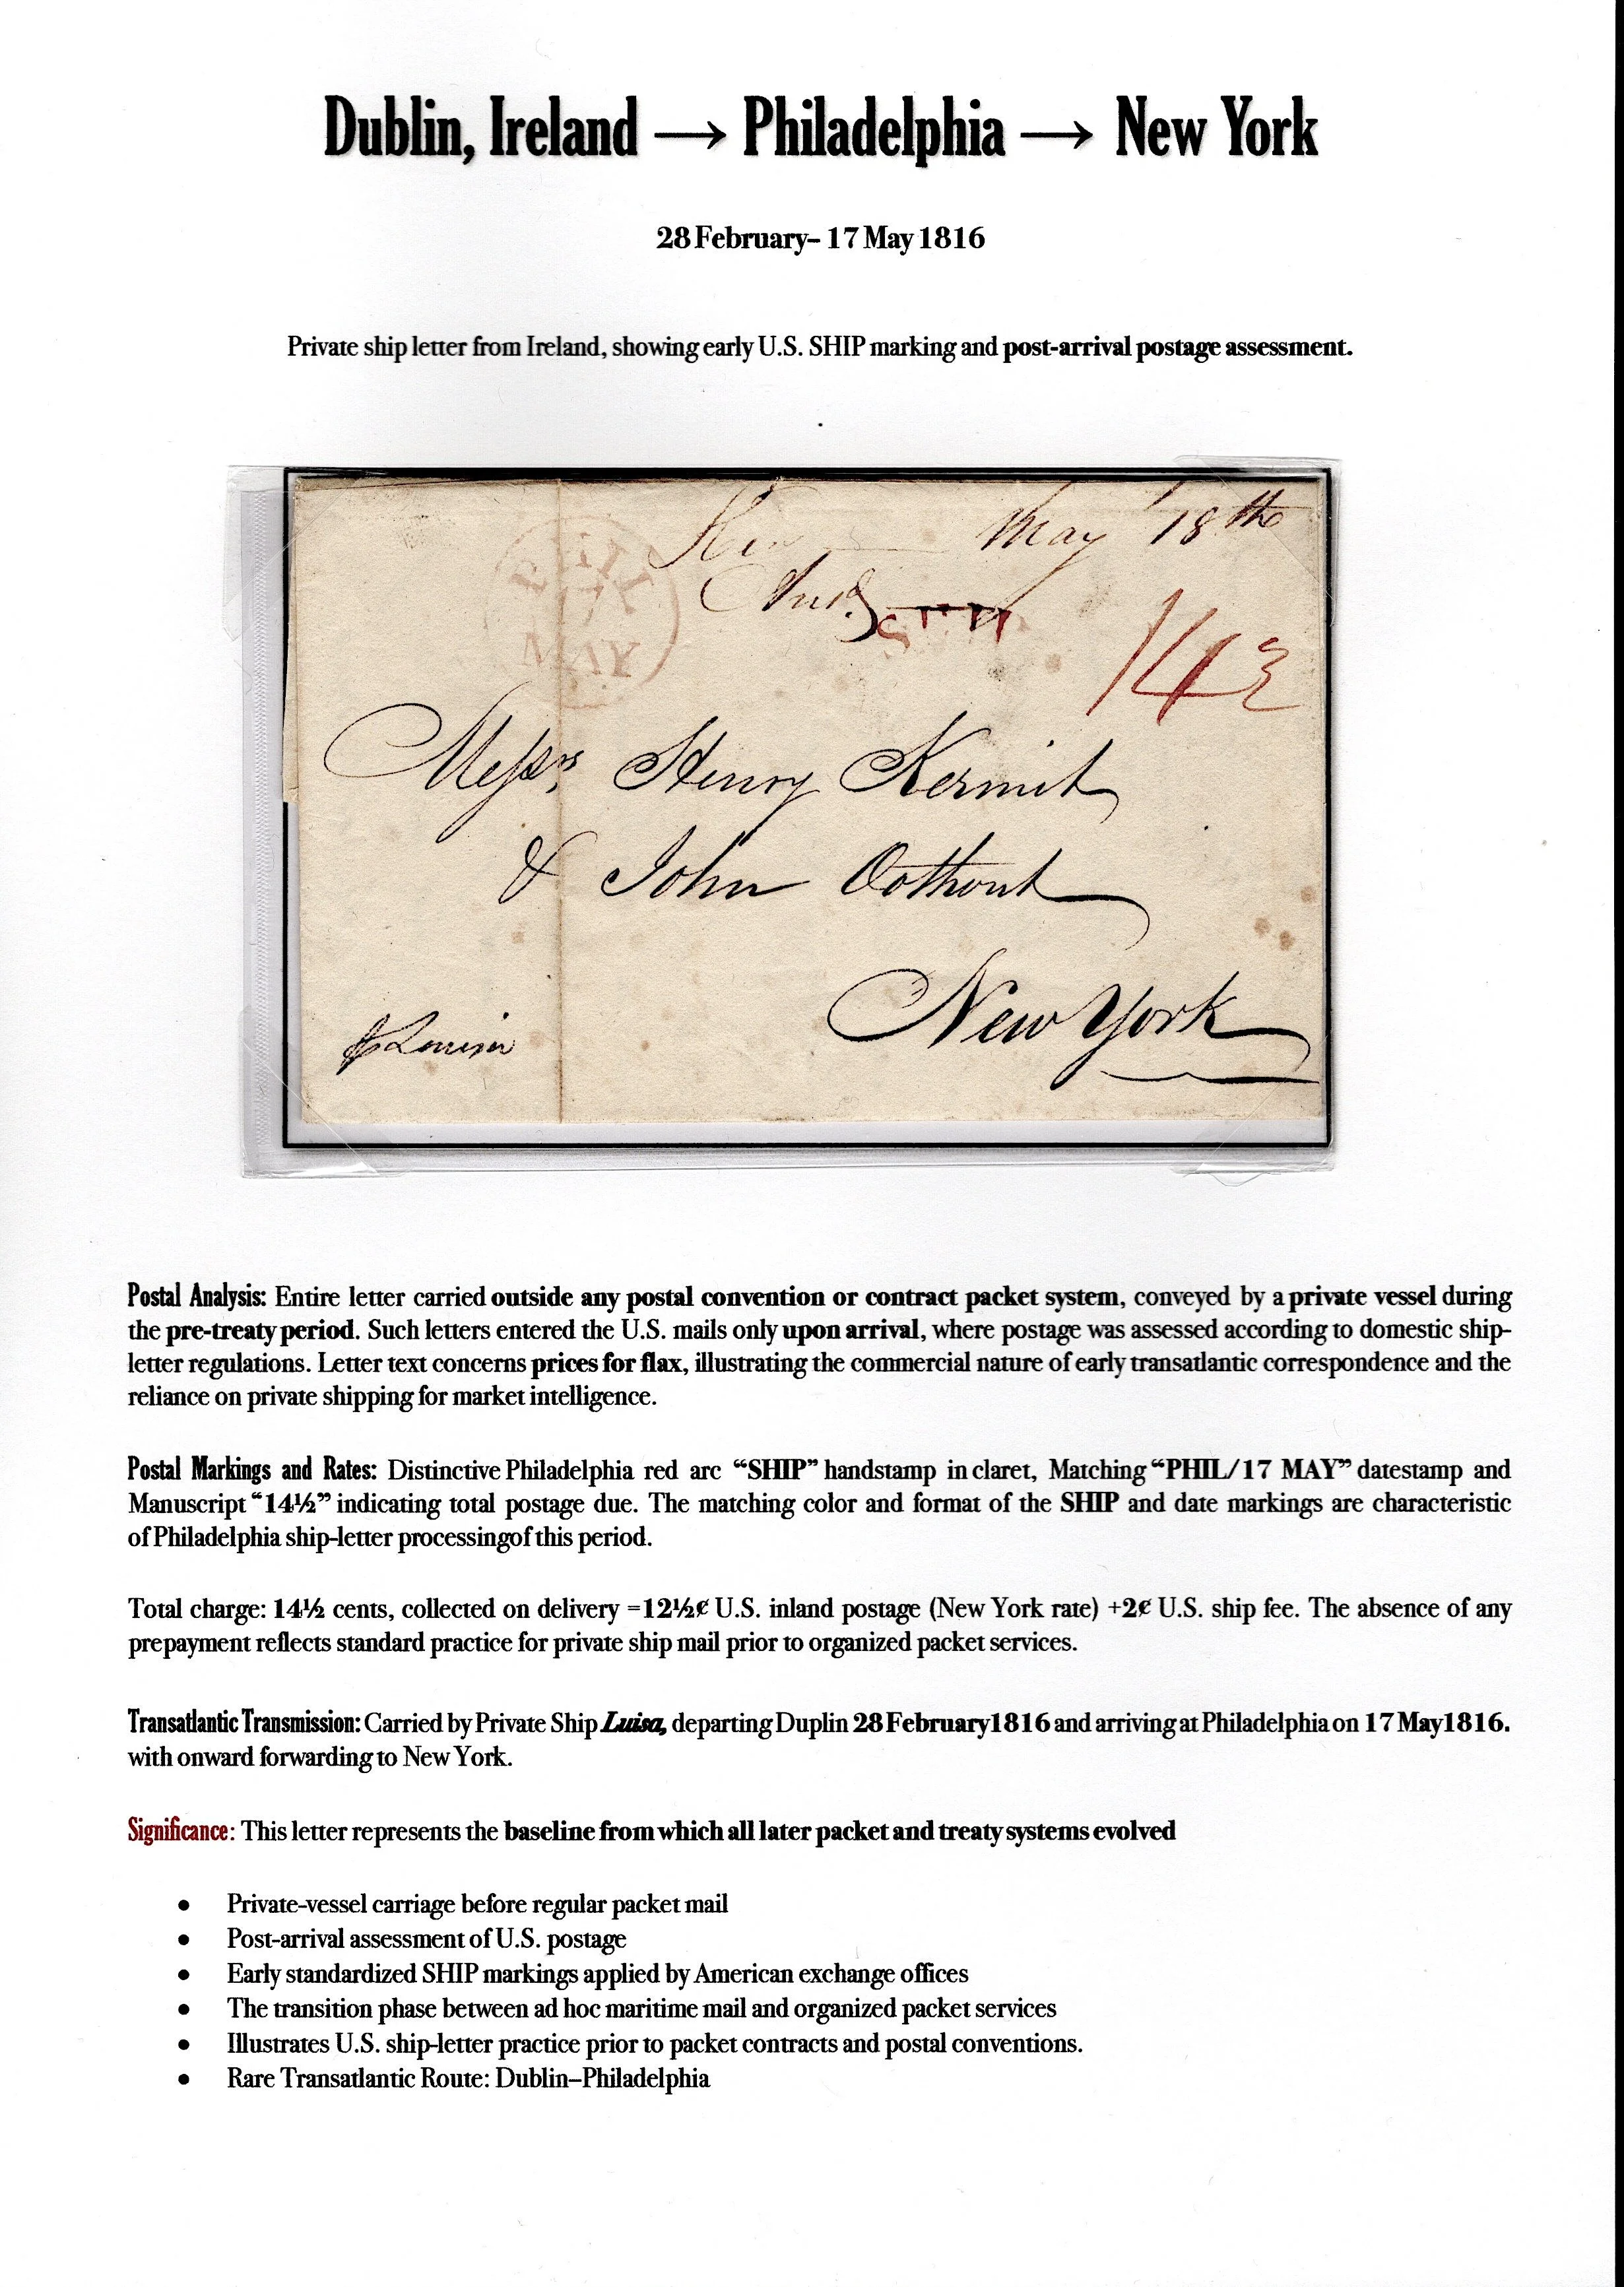 Dublin, Ireland → Philadelphia → New York
28 February– 17 May 1816
Private ship letter from Ireland, showing early U.S. SHIP marking and post-arrival postage assessment.
May 18th
PHIL
17
MAY
SHIP
14½
Messrs, Henry Kermit
& John Oothout
New York
Louisa
Postal Analysis: Entire letter carried outside any postal convention or contract packet system, conveyed by a private vessel during
the pre-treaty period. Such letters entered the U.S. mails only upon arrival, where postage was assessed according to domestic ship-
letter regulations. Letter text concerns prices for flax, illustrating the commercial nature of early transatlantic correspondence and the
reliance on private shipping for market intelligence.
Postal Markings and Rates: Distinctive Philadelphia red arc “SHIP” handstamp in claret, Matching “PHIL/17 MAY” datestamp and
Manuscript “14½” indicating total postage due. The matching color and format of the SHIP and date markings are characteristic
of Philadelphia ship-letter processingof this period.
Total charge: 14½ cents, collected on delivery =12½¢ U.S. inland postage (New York rate) +2¢ U.S. ship fee. The absence of any
prepayment reflects standard practice for private ship mail prior to organized packet services.
Transatlantic Transmission: Carried by Private Ship Luisa, departing Duplin 28 February1816 and arriving at Philadelphia on 17 May1816.
with onward forwarding to New York.
Significance: This letter represents the baseline from which all later packet and treaty systems evolved
• Private-vessel carriage before regular packet mail
• Post-arrival assessment of U.S. postage
• Early standardized SHIP markings applied by American exchange offices
• The transition phase between ad hoc maritime mail and organized packet services
• Illustrates U.S. ship-letter practice prior to packet contracts and postal conventions.
• Rare Transatlantic Route: Dublin–Philadelphia